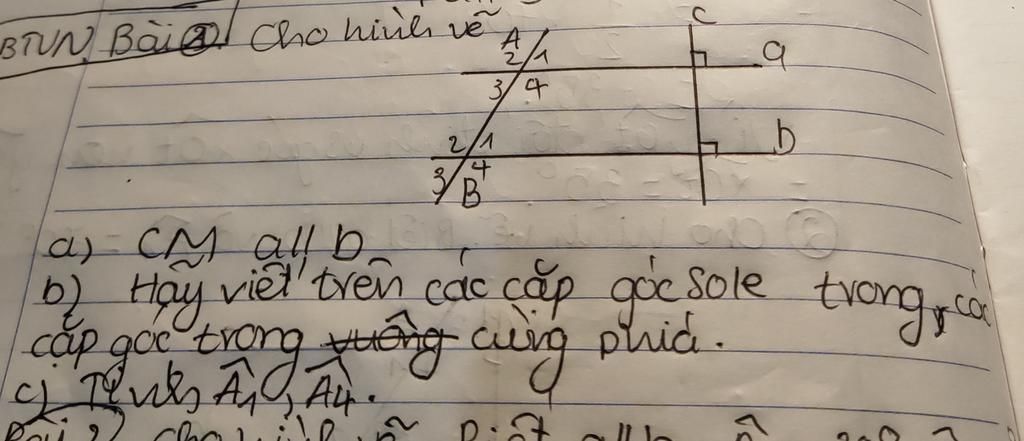 BTVN Bài 2 Cho hình vẽ
A
2 1
3 4
c
a
2 1
3 4
B
b
a) CM a//b
b) Hãy viết trên các cặp góc sole trong, các
cặp góc trong vuông cùng phía.
c) Tính Â1, Â4.